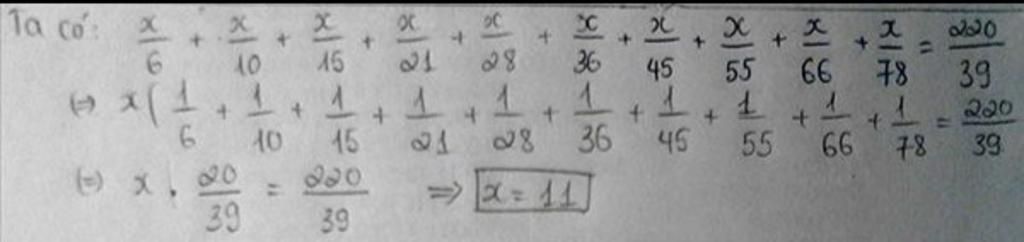 Ta có: x/6 + x/10 + x/15 + x/21 + x/28 + x/36 + x/45 + x/55 + x/66 + x/78 = 220/39
(=) x(1/6 + 1/10 + 1/15 + 1/21 + 1/28 + 1/36 + 1/45 + 1/55 + 1/66 + 1/78 = 220/39
(=) x . 20/39 = 220/39 => x = 11